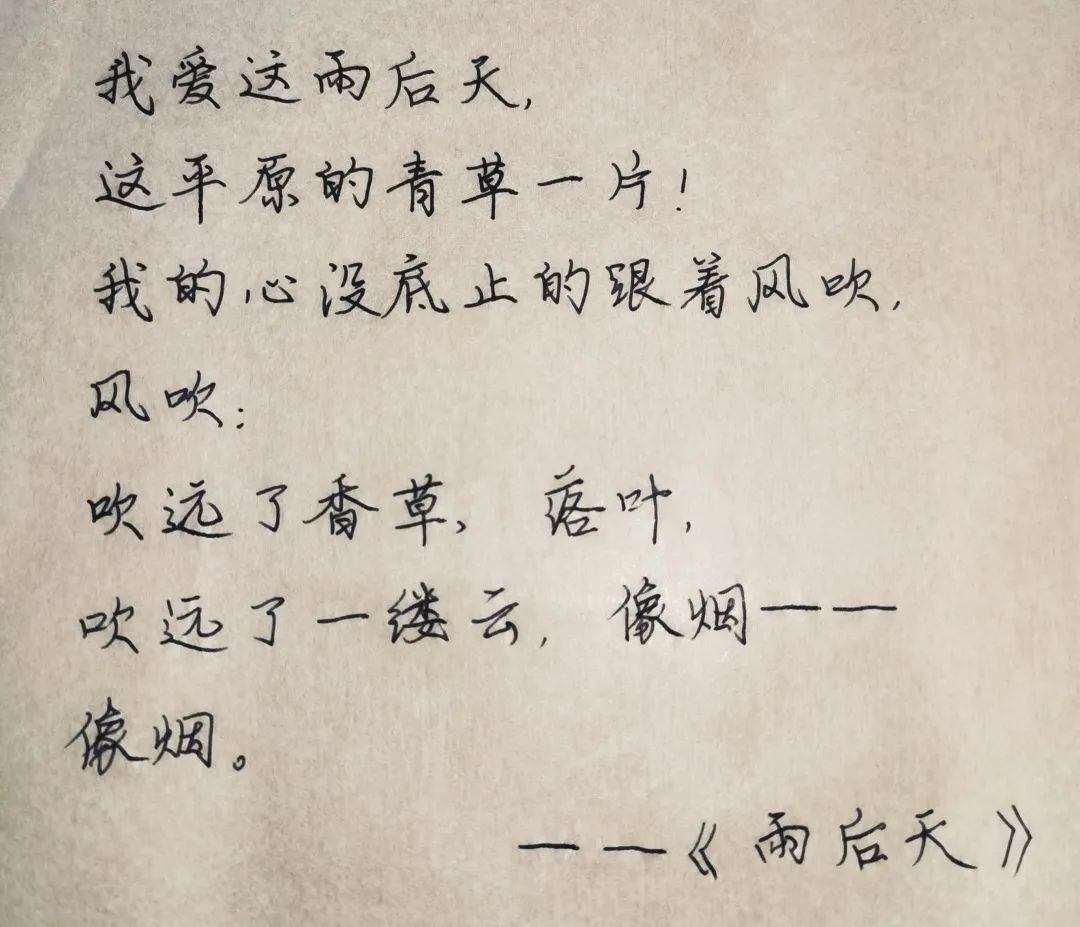 我爱这雨后天，
这平原的青草一片！
我的心没底止的跟着风吹，
风吹：
吹远了香草，落叶，
吹远了一缕云，像烟——
像烟。
——《雨后天》